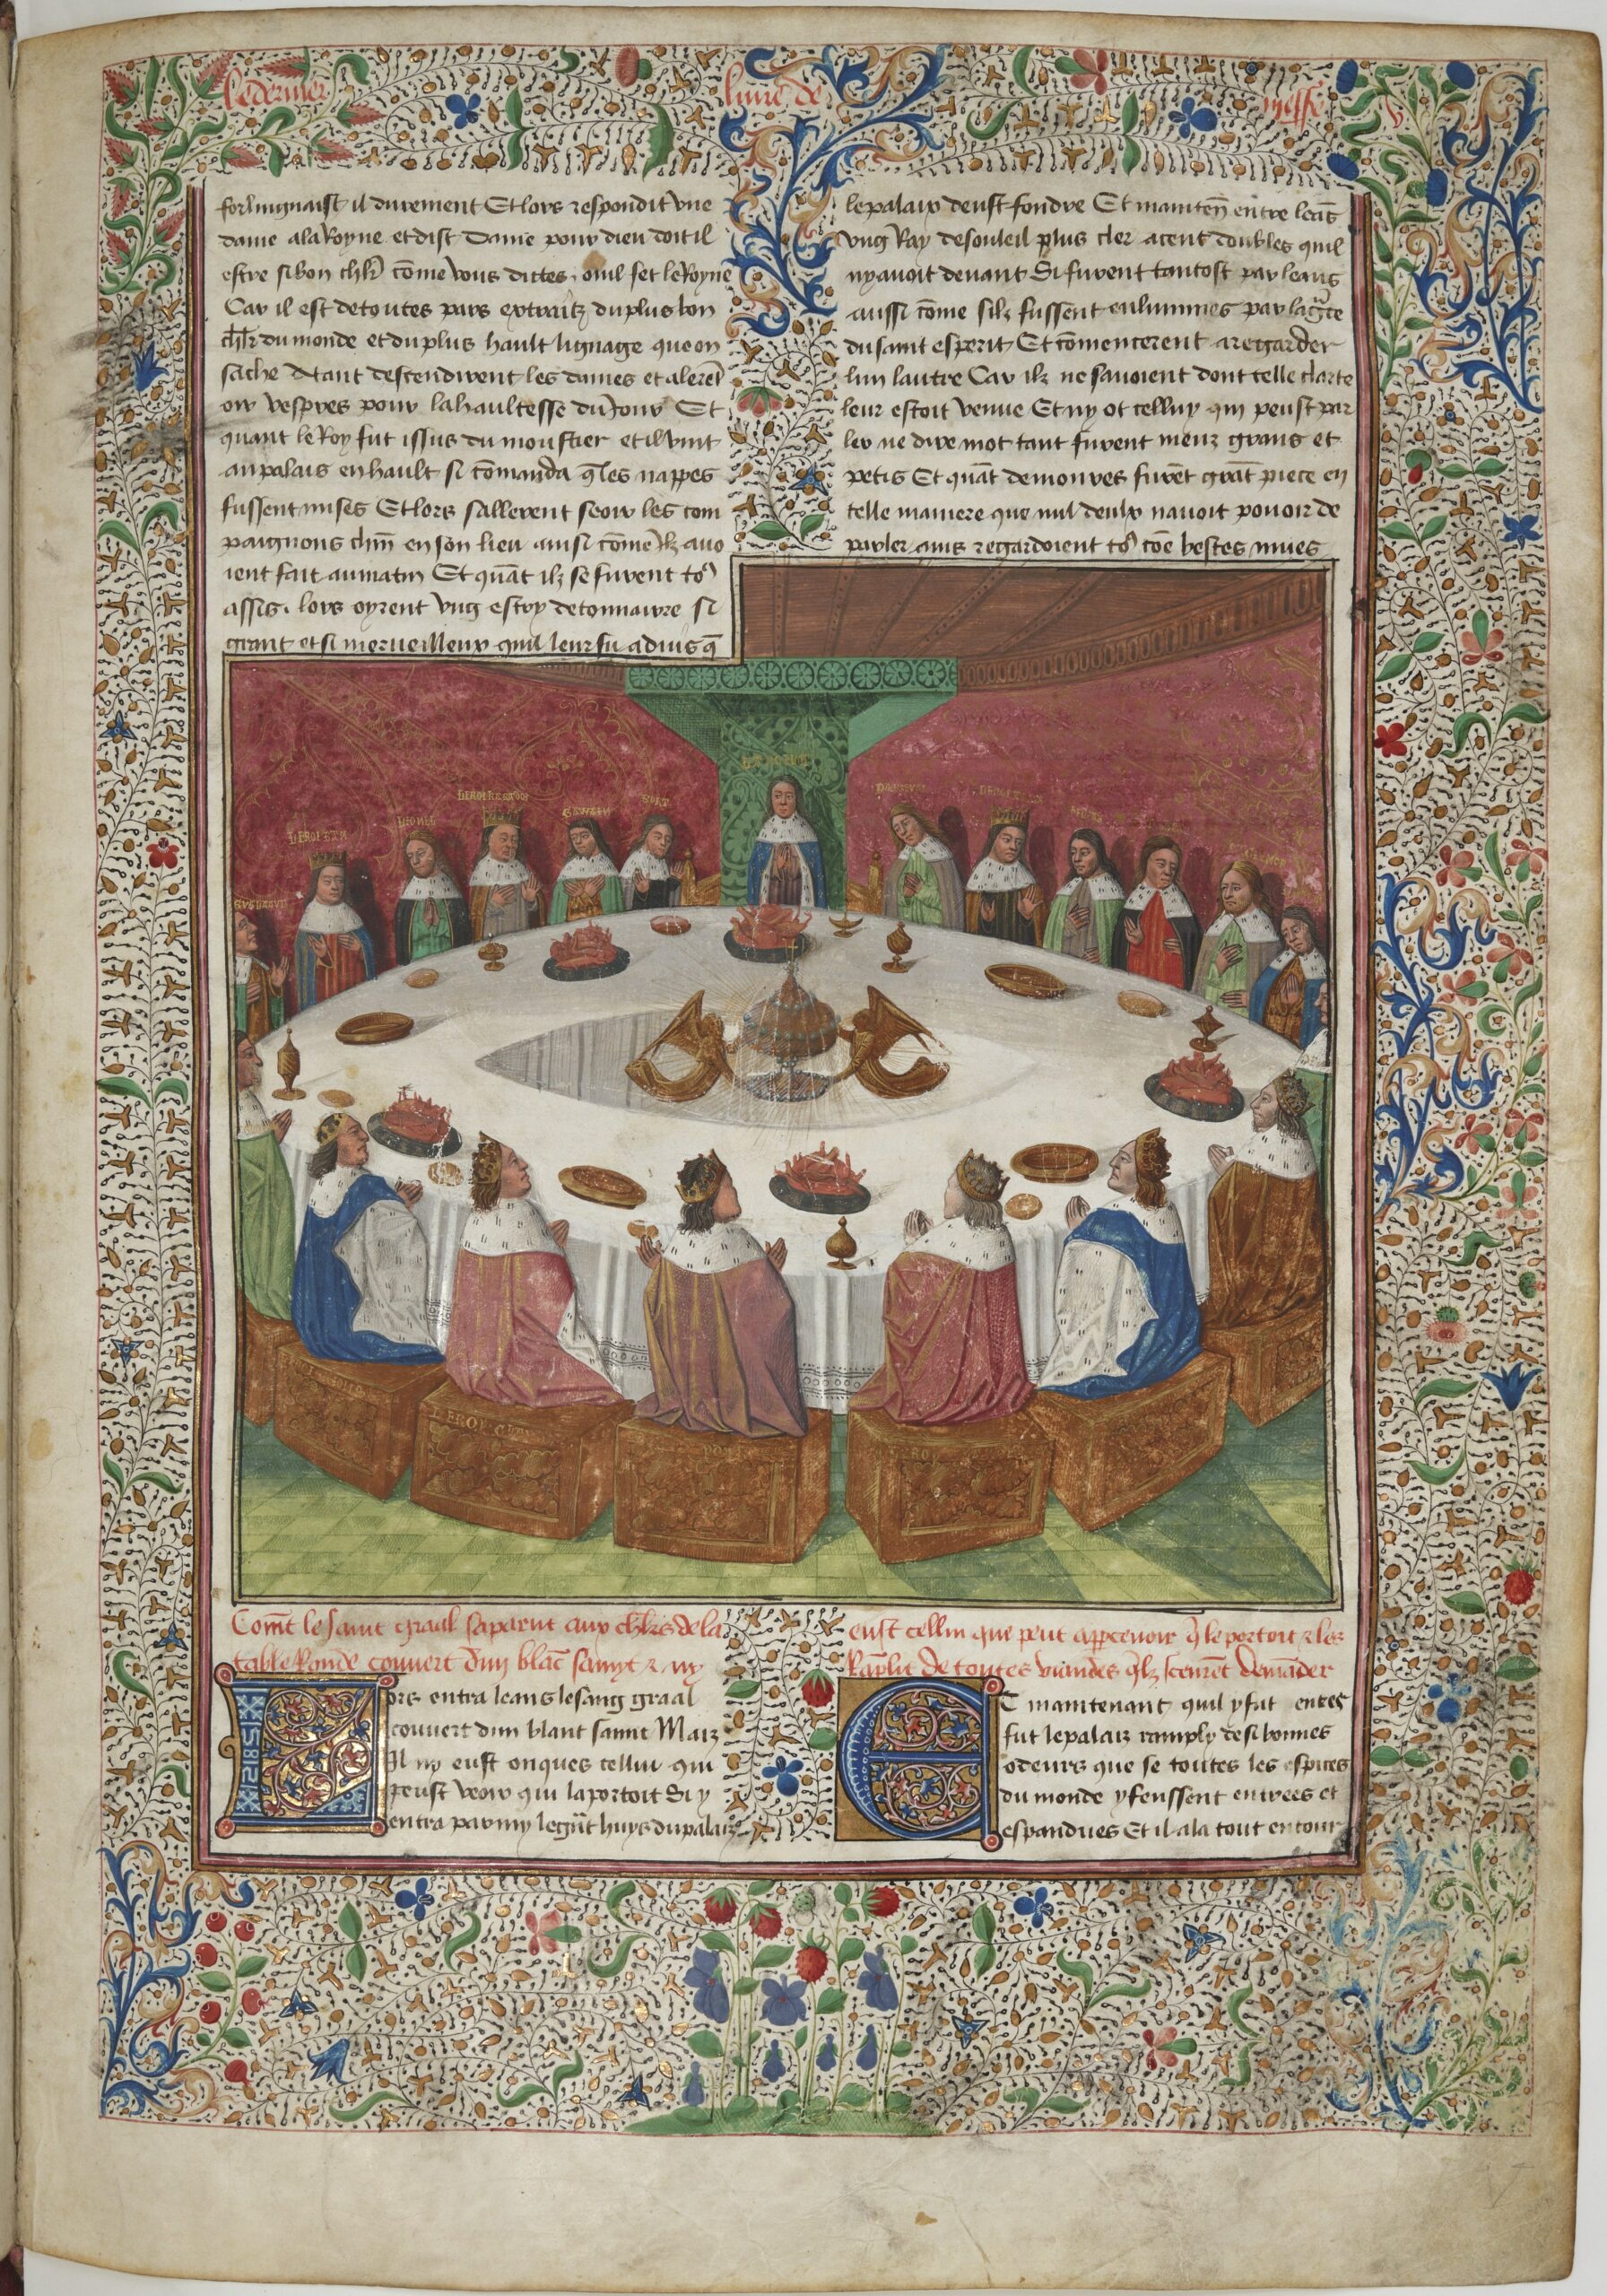 Le dernier livre de messe
forlingnaist il durement Et lors respondit vne
dame a la Royne et dist Dame pour dieu doit il
estre si bon chlr cōme vous dictes ouil fet le Royne
Car il est de toutes pars extraitz du plus bon
chlr du monde et du plus hault lignage que on
sache Atant descendirent les dames et alerēt
oir vespres pour la haultesse du Jour Et
quant le Roy fut issus du moustier et il vint
au palais en hault si cōmanda q̄ les nappes
fussent mises Et lors sallerent seoir les com
paignons chūn en son lieu ainsi cōme ilz auo
ient fait au matin Et quāt ilz se furent to9
assis lors oyrent vng escroy de tonnairre si
grant et si merueilleux quil leur fu aduis q̄
le palaix deust fondre Et mainteñ entre leās
vng Ray de souleil plus cler a cent doubles quil
ny auoit deuant Si furent tantost par leans
aussi cōme silz fussent enlumines par la grce
du saint esperit Et cōmencerent a regarder
lun lautre Car ilz ne sauoient dont telle clarte
leur estoit venue Et ny ot celluy qui peust par
ler ne dire mot tant furent meuz grans et
petis Et quāt demoures furēt grāt piece en
telle maniere que nul deulx nauoit pouoir de
parler ains regardoient to9 cōe bestes mues
LEROI
LEONEL
GAWEIN
BORT
LEROI
Com̄t le saint graal saparut aux chlrs de la
table Ronde couuert dun blāc samyt & ny
eust cellui que peut appceuoir q̄ le portoit & les
Rāplit de toutes viandes q̄lz sceurēt demāder
ors entra leans le sang graal
couuert dun blanc samit Maiz
Il ny eust onques cellui qui
peust veoir qui la portoit Si y
entra parmy le grāt huys du palaiz
T maintenant quil y fut entres
fut le palaiz ramply de si bonnes
odeurs que se toutes les espices
du monde y feussent entrees et
espandues Et il ala tout entour